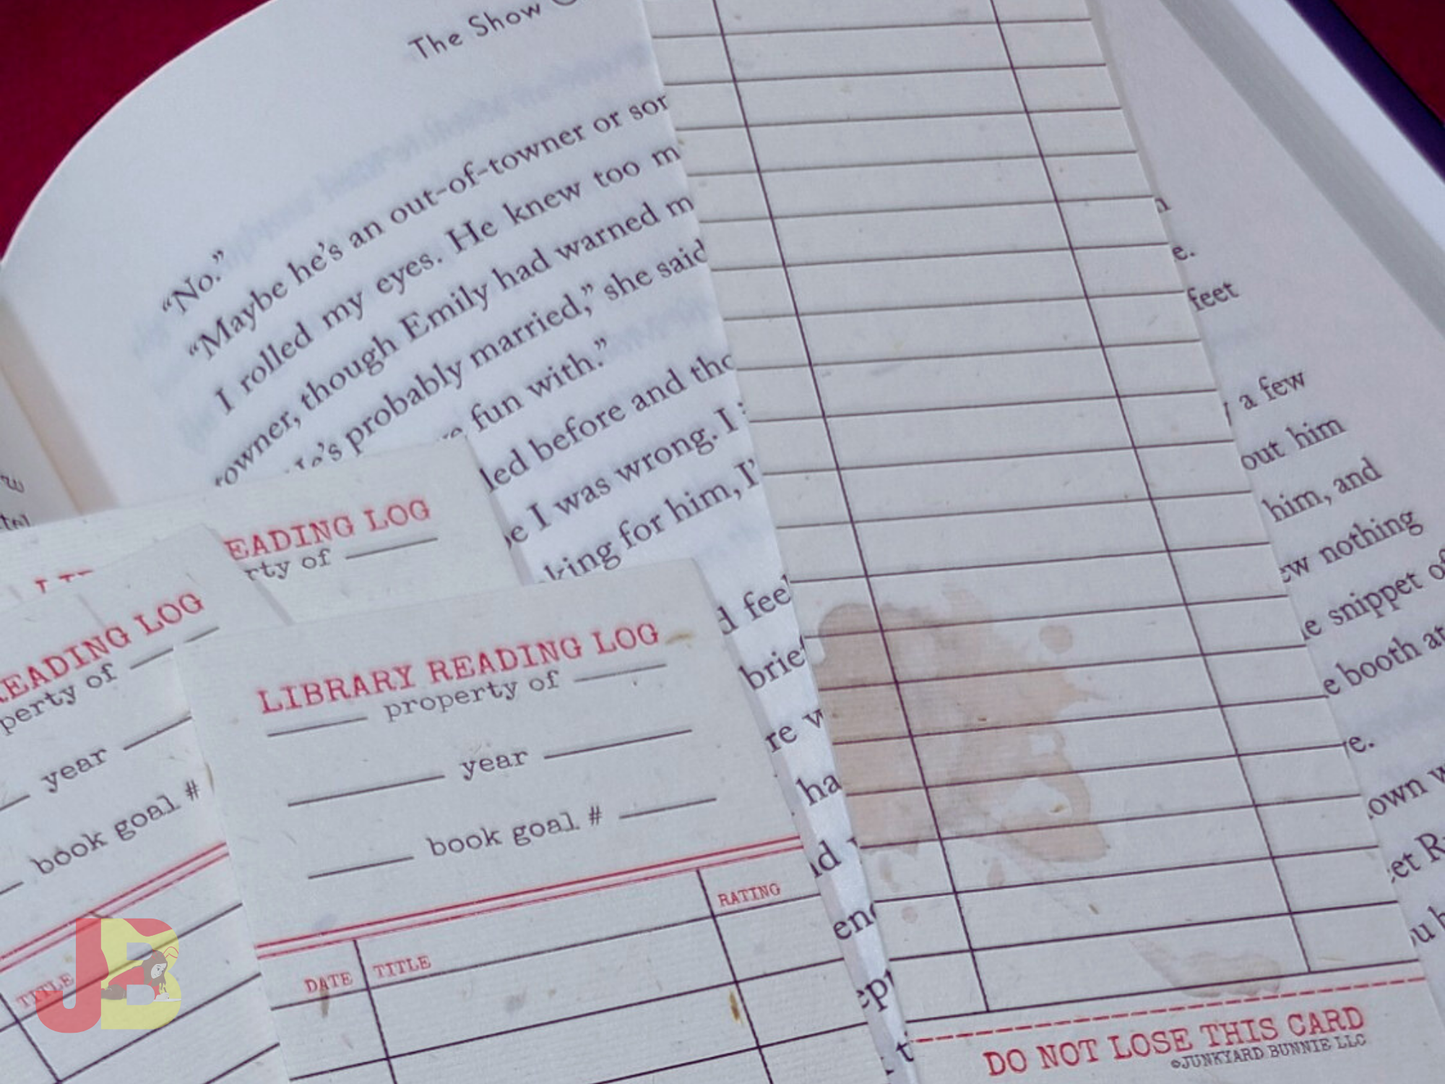 The Show
"No."
"Maybe he's an out-of-towner or
I rolled my eyes. He knew too
owner, though Emily had warned
probably married," she said
fun with."
before and
I was wrong. I
for him, I'
feel
brief
feet
a few
out him
him, and
nothing
snippet of
booth
READING LOG
of
READING LOG
property of
year
book goal #
TITLE
LIBRARY READING LOG
property of
year
book goal #
DATE TITLE RATING
DO NOT LOSE THIS CARD
©JUNKYARD BUNNIE LLC
JB